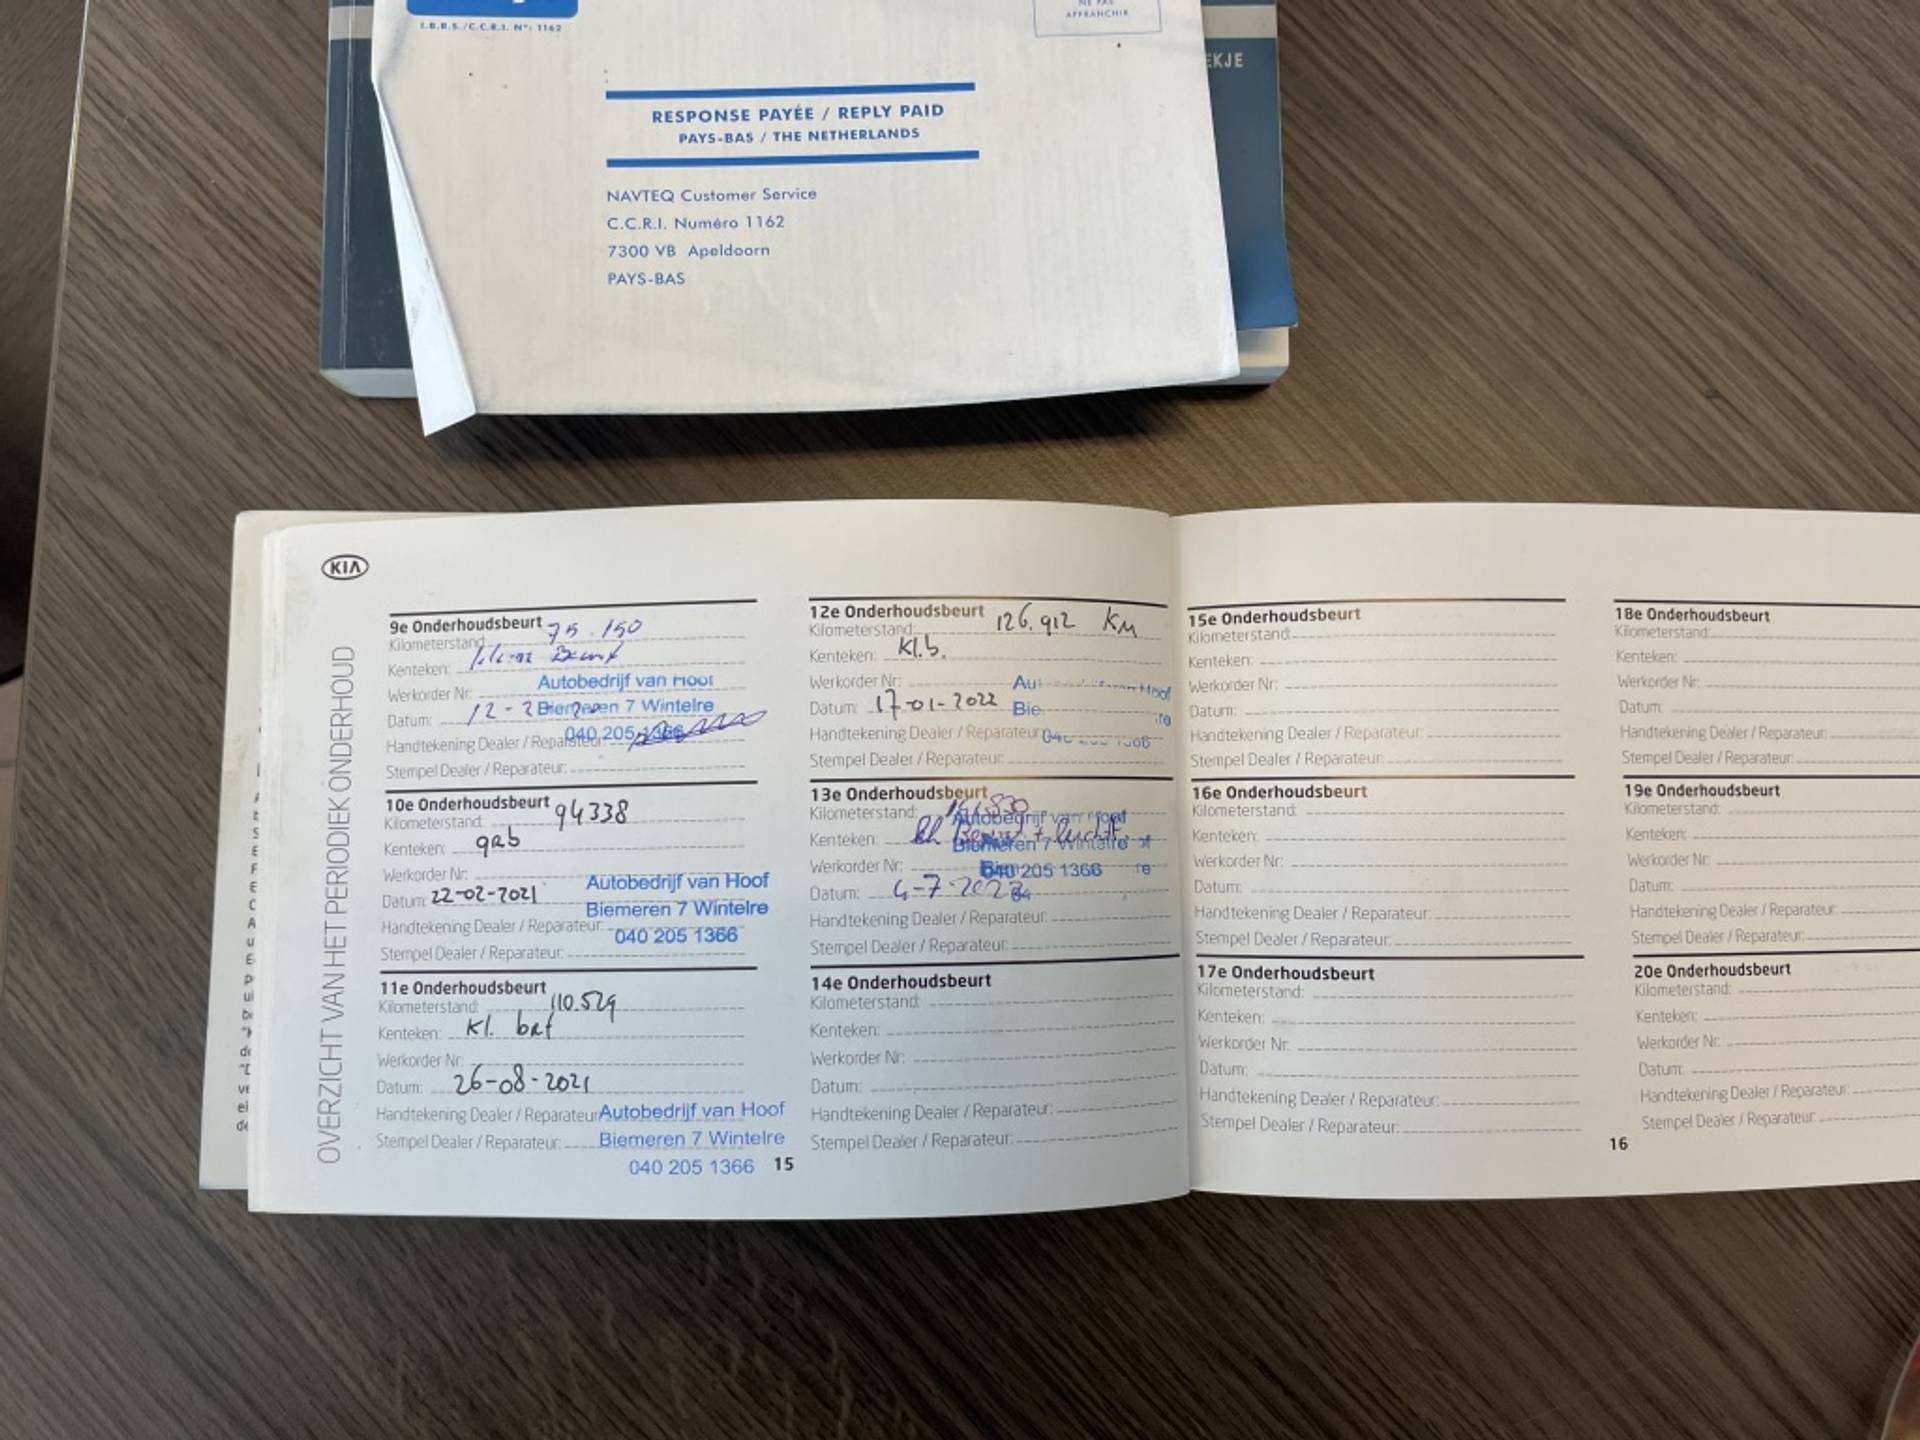 I.B.R.S./C.C.R.I. N°: 1162
NE PAS
AFFRANCHIR
EKJE
RESPONSE PAYÉE / REPLY PAID
PAYS-BAS / THE NETHERLANDS
NAVTEQ Customer Service
C.C.R.I. Numéro 1162
7300 VB Apeldoorn
PAYS-BAS
KIA
OVERZICHT VAN HET PERIODIEK ONDERHOUD
9e Onderhoudsbeurt
Kilometerstand: 75.150
Kenteken:
Werkorder Nr:
Datum: 12-2
Handtekening Dealer / Reparateur:
Stempel Dealer / Reparateur:
Autobedrijf van Hoof
Biemeren 7 Wintelre
040 205 1366
10e Onderhoudsbeurt
Kilometerstand: 94338
Kenteken: grb
Werkorder Nr:
Datum: 22-02-2021
Handtekening Dealer / Reparateur:
Stempel Dealer / Reparateur:
Autobedrijf van Hoof
Biemeren 7 Wintelre
040 205 1366
11e Onderhoudsbeurt
Kilometerstand: 110.529
Kenteken: kl. brt
Werkorder Nr:
Datum: 26-08-2021
Handtekening Dealer / Reparateur:
Stempel Dealer / Reparateur:
Autobedrijf van Hoof
Biemeren 7 Wintelre
040 205 1366
15
12e Onderhoudsbeurt
Kilometerstand: 126.912 KM
Kenteken: Kl.b.
Werkorder Nr:
Datum: 17-01-2022
Handtekening Dealer / Reparateur:
Stempel Dealer / Reparateur:
13e Onderhoudsbeurt
Kilometerstand:
Kenteken:
Werkorder Nr:
Datum: 4-7-202
Handtekening Dealer / Reparateur:
Stempel Dealer / Reparateur:
Autobedrijf van Hoof
Biemeren 7 Wintelre
040 205 1366
14e Onderhoudsbeurt
Kilometerstand:
Kenteken:
Werkorder Nr:
Datum:
Handtekening Dealer / Reparateur:
Stempel Dealer / Reparateur:
15e Onderhoudsbeurt
Kilometerstand:
Kenteken:
Werkorder Nr:
Datum:
Handtekening Dealer / Reparateur:
Stempel Dealer / Reparateur:
16e Onderhoudsbeurt
Kilometerstand:
Kenteken:
Werkorder Nr:
Datum:
Handtekening Dealer / Reparateur:
Stempel Dealer / Reparateur:
17e Onderhoudsbeurt
Kilometerstand:
Kenteken:
Werkorder Nr:
Datum:
Handtekening Dealer / Reparateur:
Stempel Dealer / Reparateur:
18e Onderhoudsbeurt
Kilometerstand:
Kenteken:
Werkorder Nr:
Datum:
Handtekening Dealer / Reparateur:
Stempel Dealer / Reparateur:
19e Onderhoudsbeurt
Kilometerstand:
Kenteken:
Werkorder Nr:
Datum:
Handtekening Dealer / Reparateur:
Stempel Dealer / Reparateur:
20e Onderhoudsbeurt
Kilometerstand:
Kenteken:
Werkorder Nr:
Datum:
Handtekening Dealer / Reparateur:
Stempel Dealer / Reparateur:
16